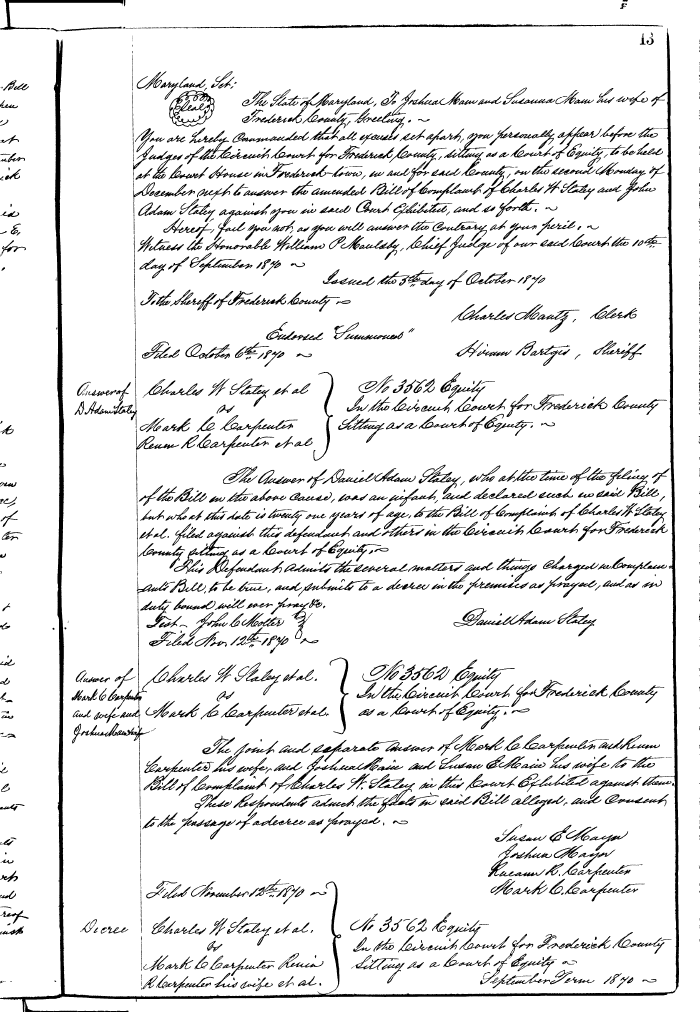 13
Maryland, Sct:
Seal
The State of Maryland, To Joshua Main and Susanna Main his wife of
Frederick County, Greeting. ~
You are hereby Commanded that all excuses set apart, you personally appear before the
Judges of the Circuit Court for Frederick County, sitting as a Court of Equity, to be held
at the Court House in Frederick-town, in and for said County, on the second Monday of
December next to answer the amended Bill of Complaint of Charles W Staley and John
Adam Staley against you in said Court Exhibited, and so forth. ~
Hereof, fail you not, as you will answer the Contrary at your peril. ~
Witness the Honorable William P. Maulsby, Chief Judge of our said Court the 10th
day of September 1870 ~
Issued the 5th day of October 1870
To the Sheriff of Frederick County ~
Charles Mantz, Clerk
Endorsed "Summoned"
Filed October 6th 1870 ~
Hiram Bartgis, Sheriff
Answer of
D Adam Staley
Charles W Staley et al
vs
Mark C Carpenter
Renm R Carpenter et al
No 3562 Equity
In the Circuit Court for Frederick County
Sitting as a Court of Equity. ~
The Answer of Daniel Adam Staley, who at the time of the filing of
of the Bill in the above cause, was an infant, and declared such in said Bill,
but who at this date is twenty one years of age, to the Bill of Complaint of Charles W. Staley
et al. filed against this defendant and others in the Circuit Court for Frederick
County sitting as a Court of Equity. ~
This Defendant admits the several matters and things Charged in Complain-
ants Bill, to be true, and submits to a decree in the premises as prayed, and as in
duty bound will ever pray &c.
Test - John C Motter
Daniel Adam Staley
Filed Nov. 12th 1870 ~
Answer of
Mark C Carpenter
and wife and
Joshua Main &wife
Charles W Staley et al.
vs
Mark C Carpenter et al.
No 3562 Equity
In the Circuit Court for Frederick County
as a Court of Equity. ~
The joint and separate answer of Mark C Carpenter and Renm
Carpenter his wife, and Joshua Main and Susan E Main his wife, to the
Bill of Complaint of Charles W. Staley in this Court Exhibited against them.
These Respondents admit the facts in said Bill alleged, and Consent
to the passage of a decree as prayed. ~
Susan E Mayn
Joshua Mayn
Rueann R. Carpenter
Mark C. Carpenter
Filed November 12th 1870 ~
Decree
Charles W Staley et al.
vs
Mark C Carpenter Renia
R Carpenter his wife et al.
No 3562 Equity
In the Circuit Court for Frederick County
Sitting as a Court of Equity ~
September Term 1870 ~